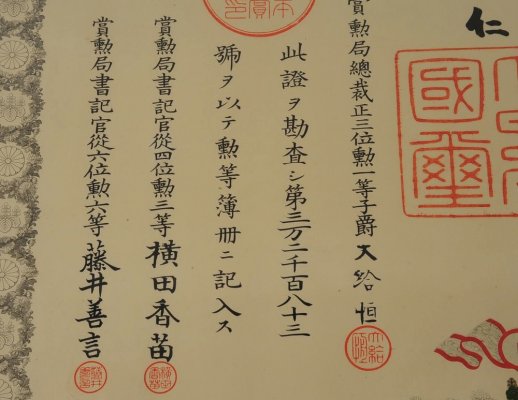 仁
國璽
賞勲局總裁正三位勲一等子爵大給恒
此證ヲ勘査シ第三万二千百八十三
號ヲ以テ勲等簿册ニ記入ス
賞勲局書記官從四位勲三等横田香苗
賞勲局書記官從六位勲六等藤井善言